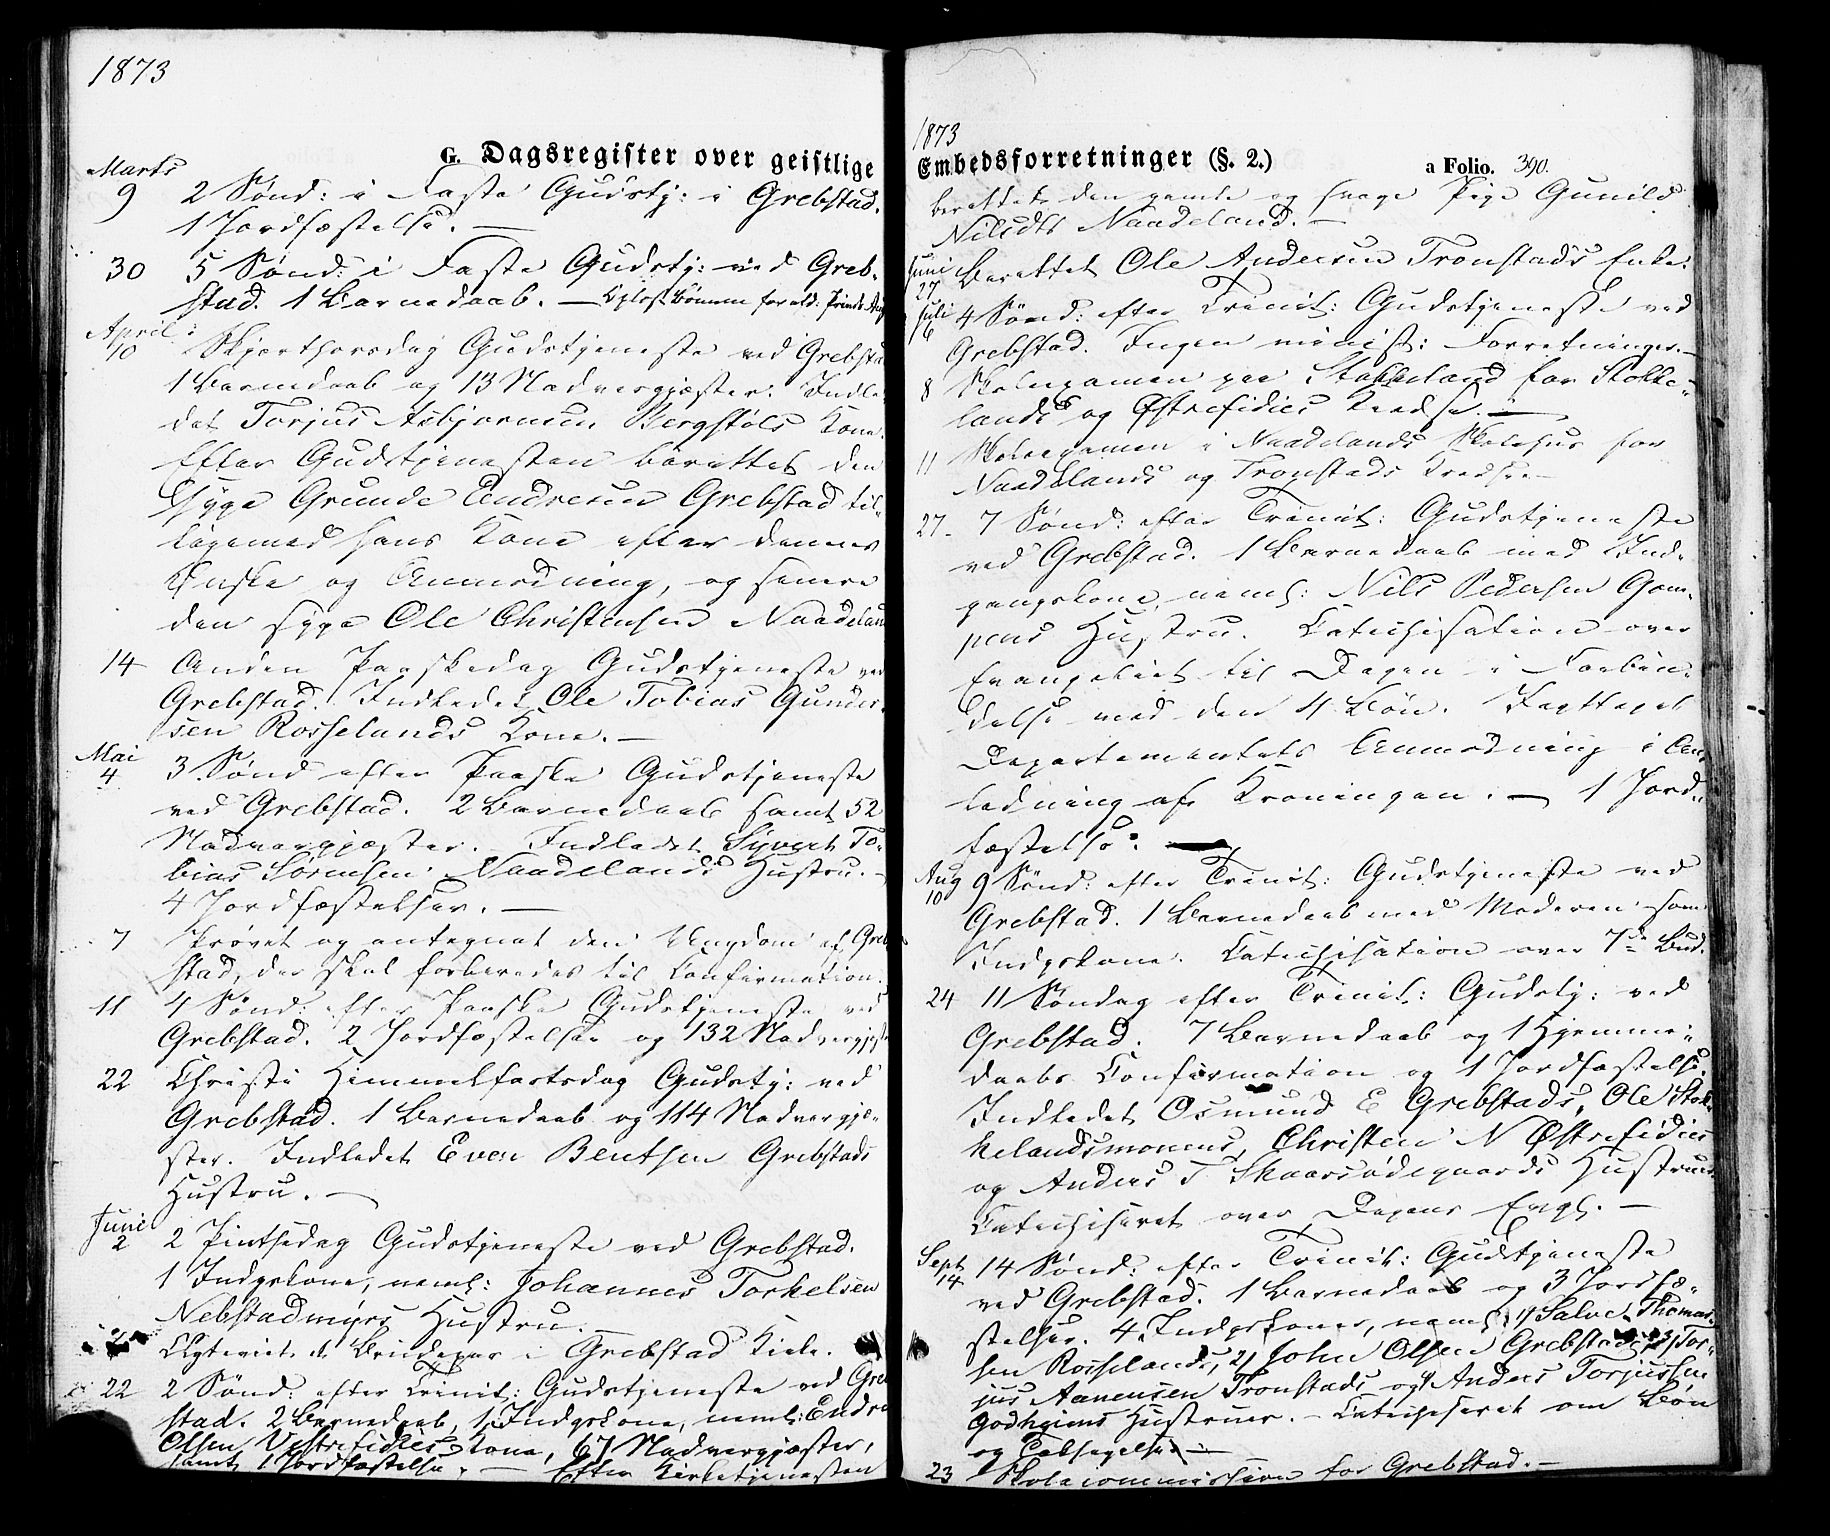 1873
G. Dagsregister over geistlige
Marts
9 2 Sønd: i Faste Gudstj: i Grebstad.
1 Jordfæstelse. —
30 5 Sønd: i Faste Gudstj: ved Greb-
stad. 1 Barnedaab. — Oplæst Bønnen for afd. Prinds Aug
April
10 Skjærthorsdag Gudstjeneste ved Grebsta
1 Barnedaab og 13 Nadvergjæster. Indle-
det Torjus Asbjørnsen Bergstøls Kone.
Efter Gudstjenesten berettet den
syge Grunde Endresen Grebstad til-
ligemed hans Kone efter dennes
Ønske og Anmodning, og senere
den syge Ole Christensen Naadelan
14 Anden Paaskedag Gudstjeneste ved
Grebstad. Indledet Ole Tobias Gunder-
sen Rosselands Kone. —
Mai
4 3 Sønd efter Paaske Gudstjeneste
ved Grebstad. 2 Barnedaab samt 52
Nadvergjæster. Indledet Syvert To-
bias Sørensen Naadelands Hustru. -
4 Jordfæstelser. —
7 Prøvet og antegnet den Ungdom af Greb
stad, der skal forberedes til Confirmation.
11 4 Sønd: efter Paaske Gudstjeneste ved
Grebstad. 2 Jordfæstelser og 132 Nadvergjæste
22 Christi Himmelfartsdag Gudstj: ved
Grebstad. 1 Barnedaab og 114 Nadvergjæ-
ster. Indledet Even Bentsen Grebstads
Hustru. —
Juni
2 2 Pintsedag Gudstjeneste ved Grebstad.
1 Indgskone, neml: Johannes Torkelsen
Nebstadmyrs Hustru. —
Ægteviet et Brudepar i Grebstad Kirke.
22 2 Sønd: efter Trinit: Gudstjeneste ved Greb
stad. 2 Barnedaab, 1 Indgskone, neml: Endre
Olsen Vestrefidjes Kone, 67 Nadvergjæster,
samt 1 Jordfæstelse. — Efter Kirketjenesten
1873
Embedsforretninger (§. 2.) a Folio. 390.
berettet den gamle og svage Pige Gunild
Nilsdtr Naadeland. —
Juni
27 Berettet Ole Andersen Tronstads Enke.
Juli
6 4 Sønd: efter Trinit: Gudstjeneste ved
Grebstad. Ingen minist: Forretninger. —
8 Skolexamen paa Stokkeland for Stokke-
lands og Østrefidjes Kredse. —
11 Skolexamen i Naadelands Skolehus for
Naadelands og Tronstads Kredse. —
27. 7 Sønd: efter Trinit: Gudstjeneste
ved Grebstad. 1 Barnedaab med Ind-
gangskone, neml: Nils Pedersen Gom-
pens Hustru. Catechisation over
Evangeliet til Dagen i Forbin-
delse med den 4 Bøn.
Departementets Anmodning i An-
ledning af Kroningen. — 1 Jord-
fæstelse.
Aug
10 9 Sønd: efter Trinit: Gudstjeneste ved
Grebstad. 1 Barnedaab med Moderen som
Indgskone. Catechisation over 7de Bud.
24 11 Søndag efter Trinit: Gudstj: ved
Grebstad. 7 Barnedaab og 1 Hjemme-
daabs Confirmation og 1 Jordfæstelse.
Indledet Osmund E Grebstads, Ole Stok-
kelandsmonens, Christen N Østrefidjes
og Anders T Skaarsødegaards Hustruer.
Catechiseret over Dagens Evgl. —
Sept
14 14 Sønd: efter Trinit: Gudstjeneste
ved Grebstad. 1 Barnedaab og 3 Jordfæ-
stelser. 4 Indgskoner, neml: 1/ Salve Thomas-
sen Rosselands, 2/ John Olsen Grebstads, 3/ Tor-
jus Aanensen Tronstads og 4/ Anders Torjussen
Godheiens Hustruer. — Catechiseret om Bøn
og Taksigelse. —
23 Skolecommission for Grebstad. —